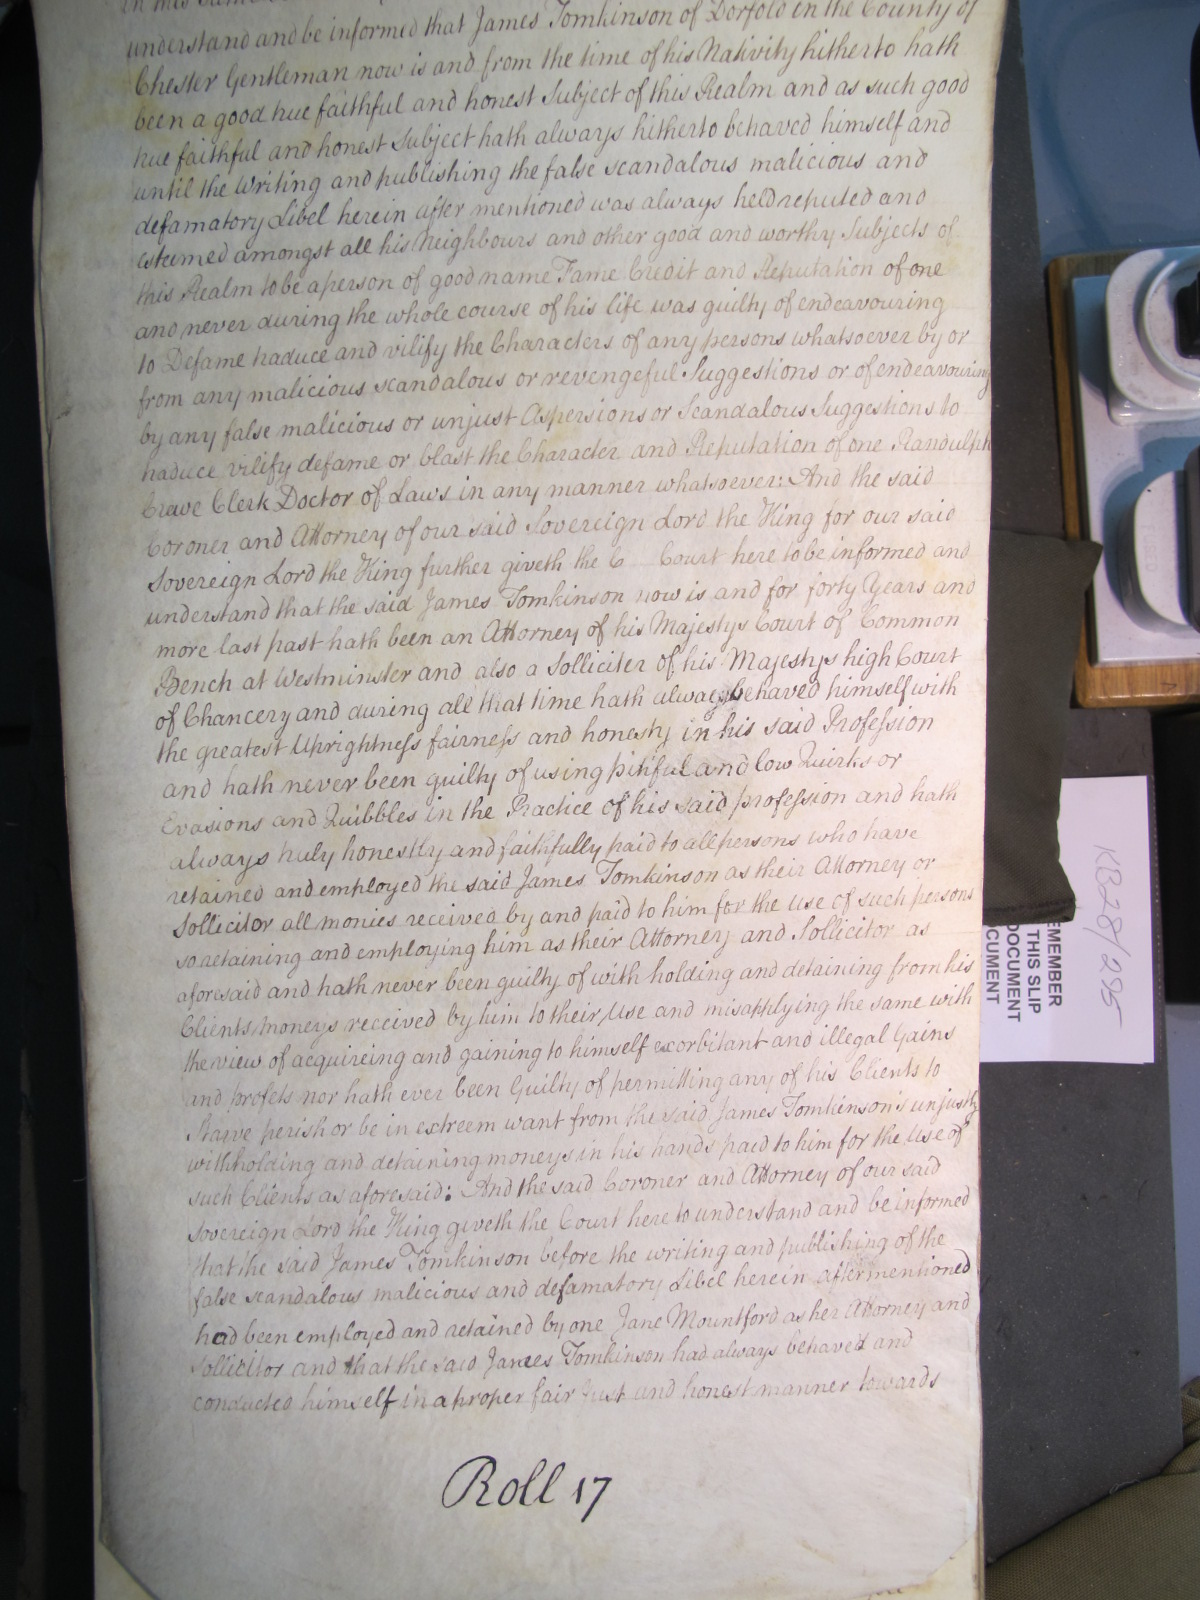 understand and be informed that James Tomkinson of Dorfold in the County of
Chester Gentleman now is and from the time of his Nativity hitherto hath
been a good true faithful and honest Subject of this Realm and as such good
true faithful and honest Subject hath always hitherto behaved himself and
until the Writing and publishing the false scandalous malicious and
defamatory Libel herein after mentioned was always held reputed and
esteemed amongst all his Neighbours and other good and worthy Subjects of
this Realm to be a person of good name Fame Credit and Reputation of one
and never during the whole course of his life was guilty of endeavouring
to Defame traduce and vilify the Characters of any persons whatsoever by or
from any malicious scandalous or revengeful Suggestions or of endeavouring
by any false malicious or unjust Aspersions or Scandalous Suggestions to
traduce vilify defame or blast the Character and Reputation of one Randulph
Crewe Clerk Doctor of Laws in any manner whatsoever: And the said
Coroner and Attorney of our said Sovereign Lord the King for our said
Sovereign Lord the King further giveth the C Court here to be informed and
understand that the said James Tomkinson now is and for forty Years and
more last past hath been an Attorney of his Majestys Court of Common
Bench at Westminster and also a Solliciter of his Majestys high Court
of Chancery and during all that time hath always behaved himself with
the greatest Uprightness fairness and honesty in his said Profession
and hath never been guilty of using pitiful and low Quirks or
Evasions and Quibbles in the Practice of his said profession and hath
always truly honestly and faithfully paid to all persons who have
retained and employed the said James Tomkinson as their Attorney or
Sollicitor all monies received by and paid to him for the use of such persons
so retaining and employing him as their Attorney and Sollicitor as
aforesaid and hath never been guilty of with holding and detaining from his
Clients moneys received by him to their Use and misapplying the same with
the view of acquireing and gaining to himself exorbitant and illegal Gains
and profets nor hath ever been Guilty of permitting any of his Clients to
Starve perish or be in extreem want from the said James Tomkinson's unjustly
withholding and detaining moneys in his hands paid to him for the Use of
such Clients as aforesaid: And the said Coroner and Attorney of our said
Sovereign Lord the King giveth the Court here to understand and be informed
that the said James Tomkinson before the writing and publishing of the
false scandalous malicious and defamatory Libel herein aftermentioned
had been employed and retained by one Jane Mountford as her Attorney and
Sollicitor and that the said James Tomkinson had always behaved and
conducted himself in a proper fair just and honest manner towards
Roll 17
KB28/295
EMEMBER
THIS SLIP
DOCUMENT
CUMENT